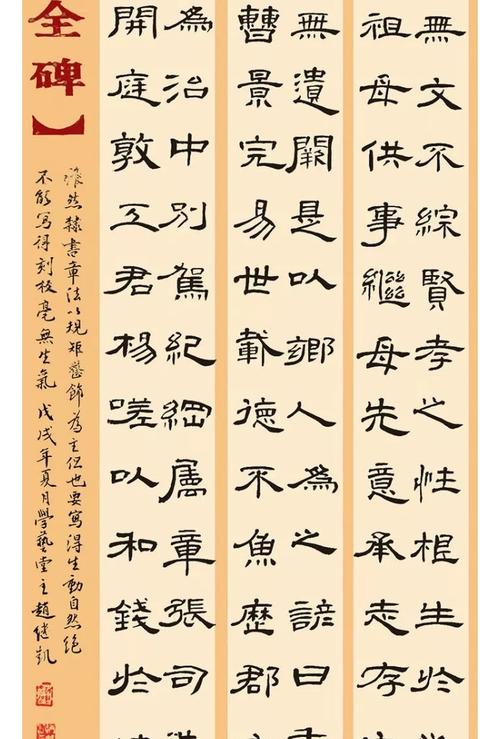 無文不綜賢孝之性根生於
祖母供事繼母先意承志存
無遺闕是以鄉人為之諺曰
曹景完易世載德不魚歷郡
為治中別駕紀綱屬章張司
開庭敦工君楊嗟以和錢於
全碑】
雖然隸書章法以規矩整飾為主但也要寫得生動自然絕
不能写得刻板毫無生氣 戊戌年夏月學藝堂主趙继凱